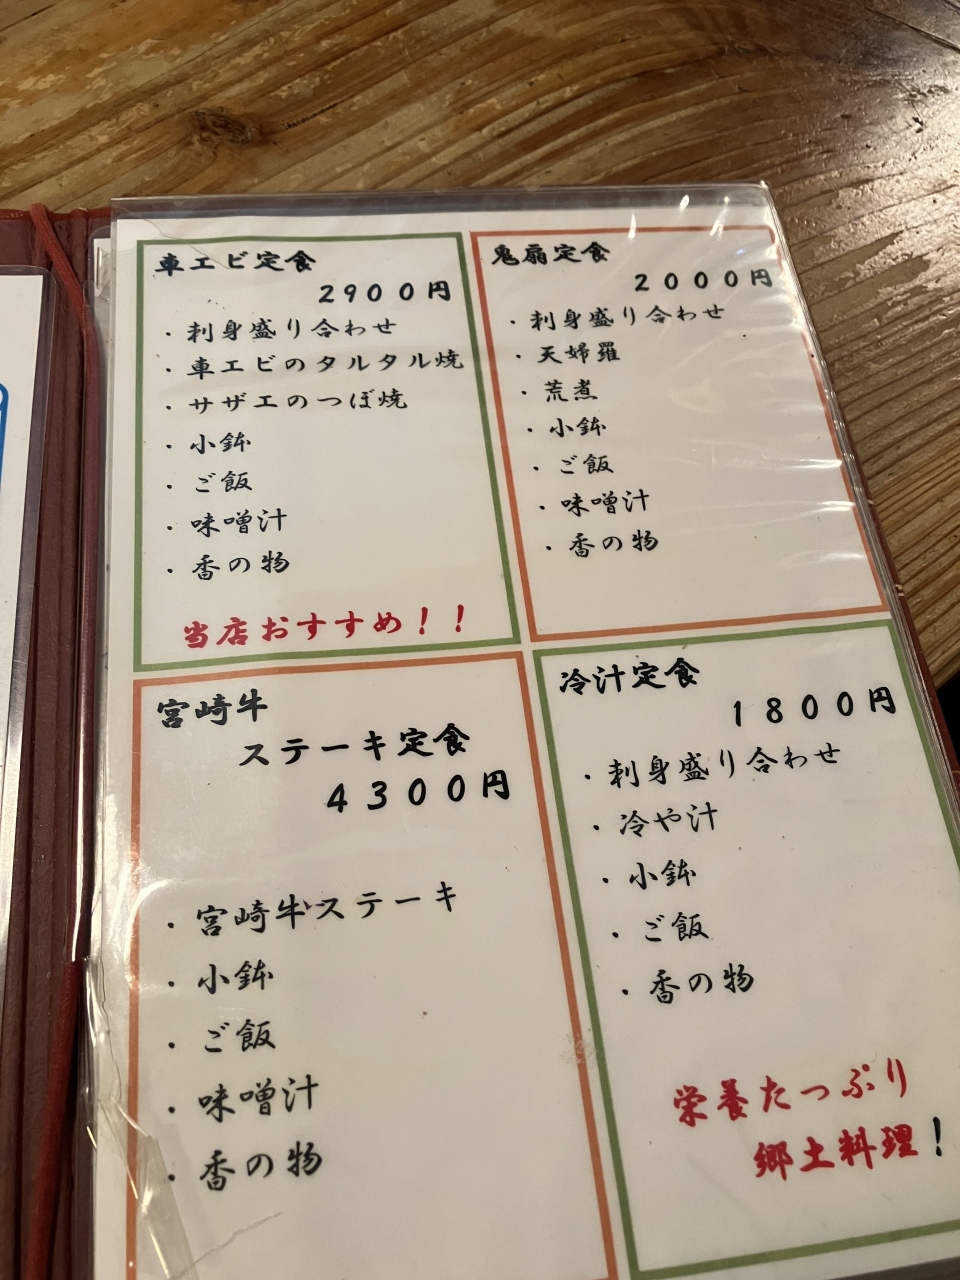 車エビ定食
2900円
・刺身盛り合わせ
・車エビのタルタル焼
・サザエのつぼ焼
・小鉢
・ご飯
・味噌汁
・香の物
当店おすすめ！！
鬼扇定食
2000円
・刺身盛り合わせ
・天婦羅
・荒煮
・小鉢
・ご飯
・味噌汁
・香の物
宮崎牛
ステーキ定食
4300円
・宮崎牛ステーキ
・小鉢
・ご飯
・味噌汁
・香の物
冷汁定食
1800円
・刺身盛り合わせ
・冷や汁
・小鉢
・ご飯
・香の物
栄養たっぷり
郷土料理！